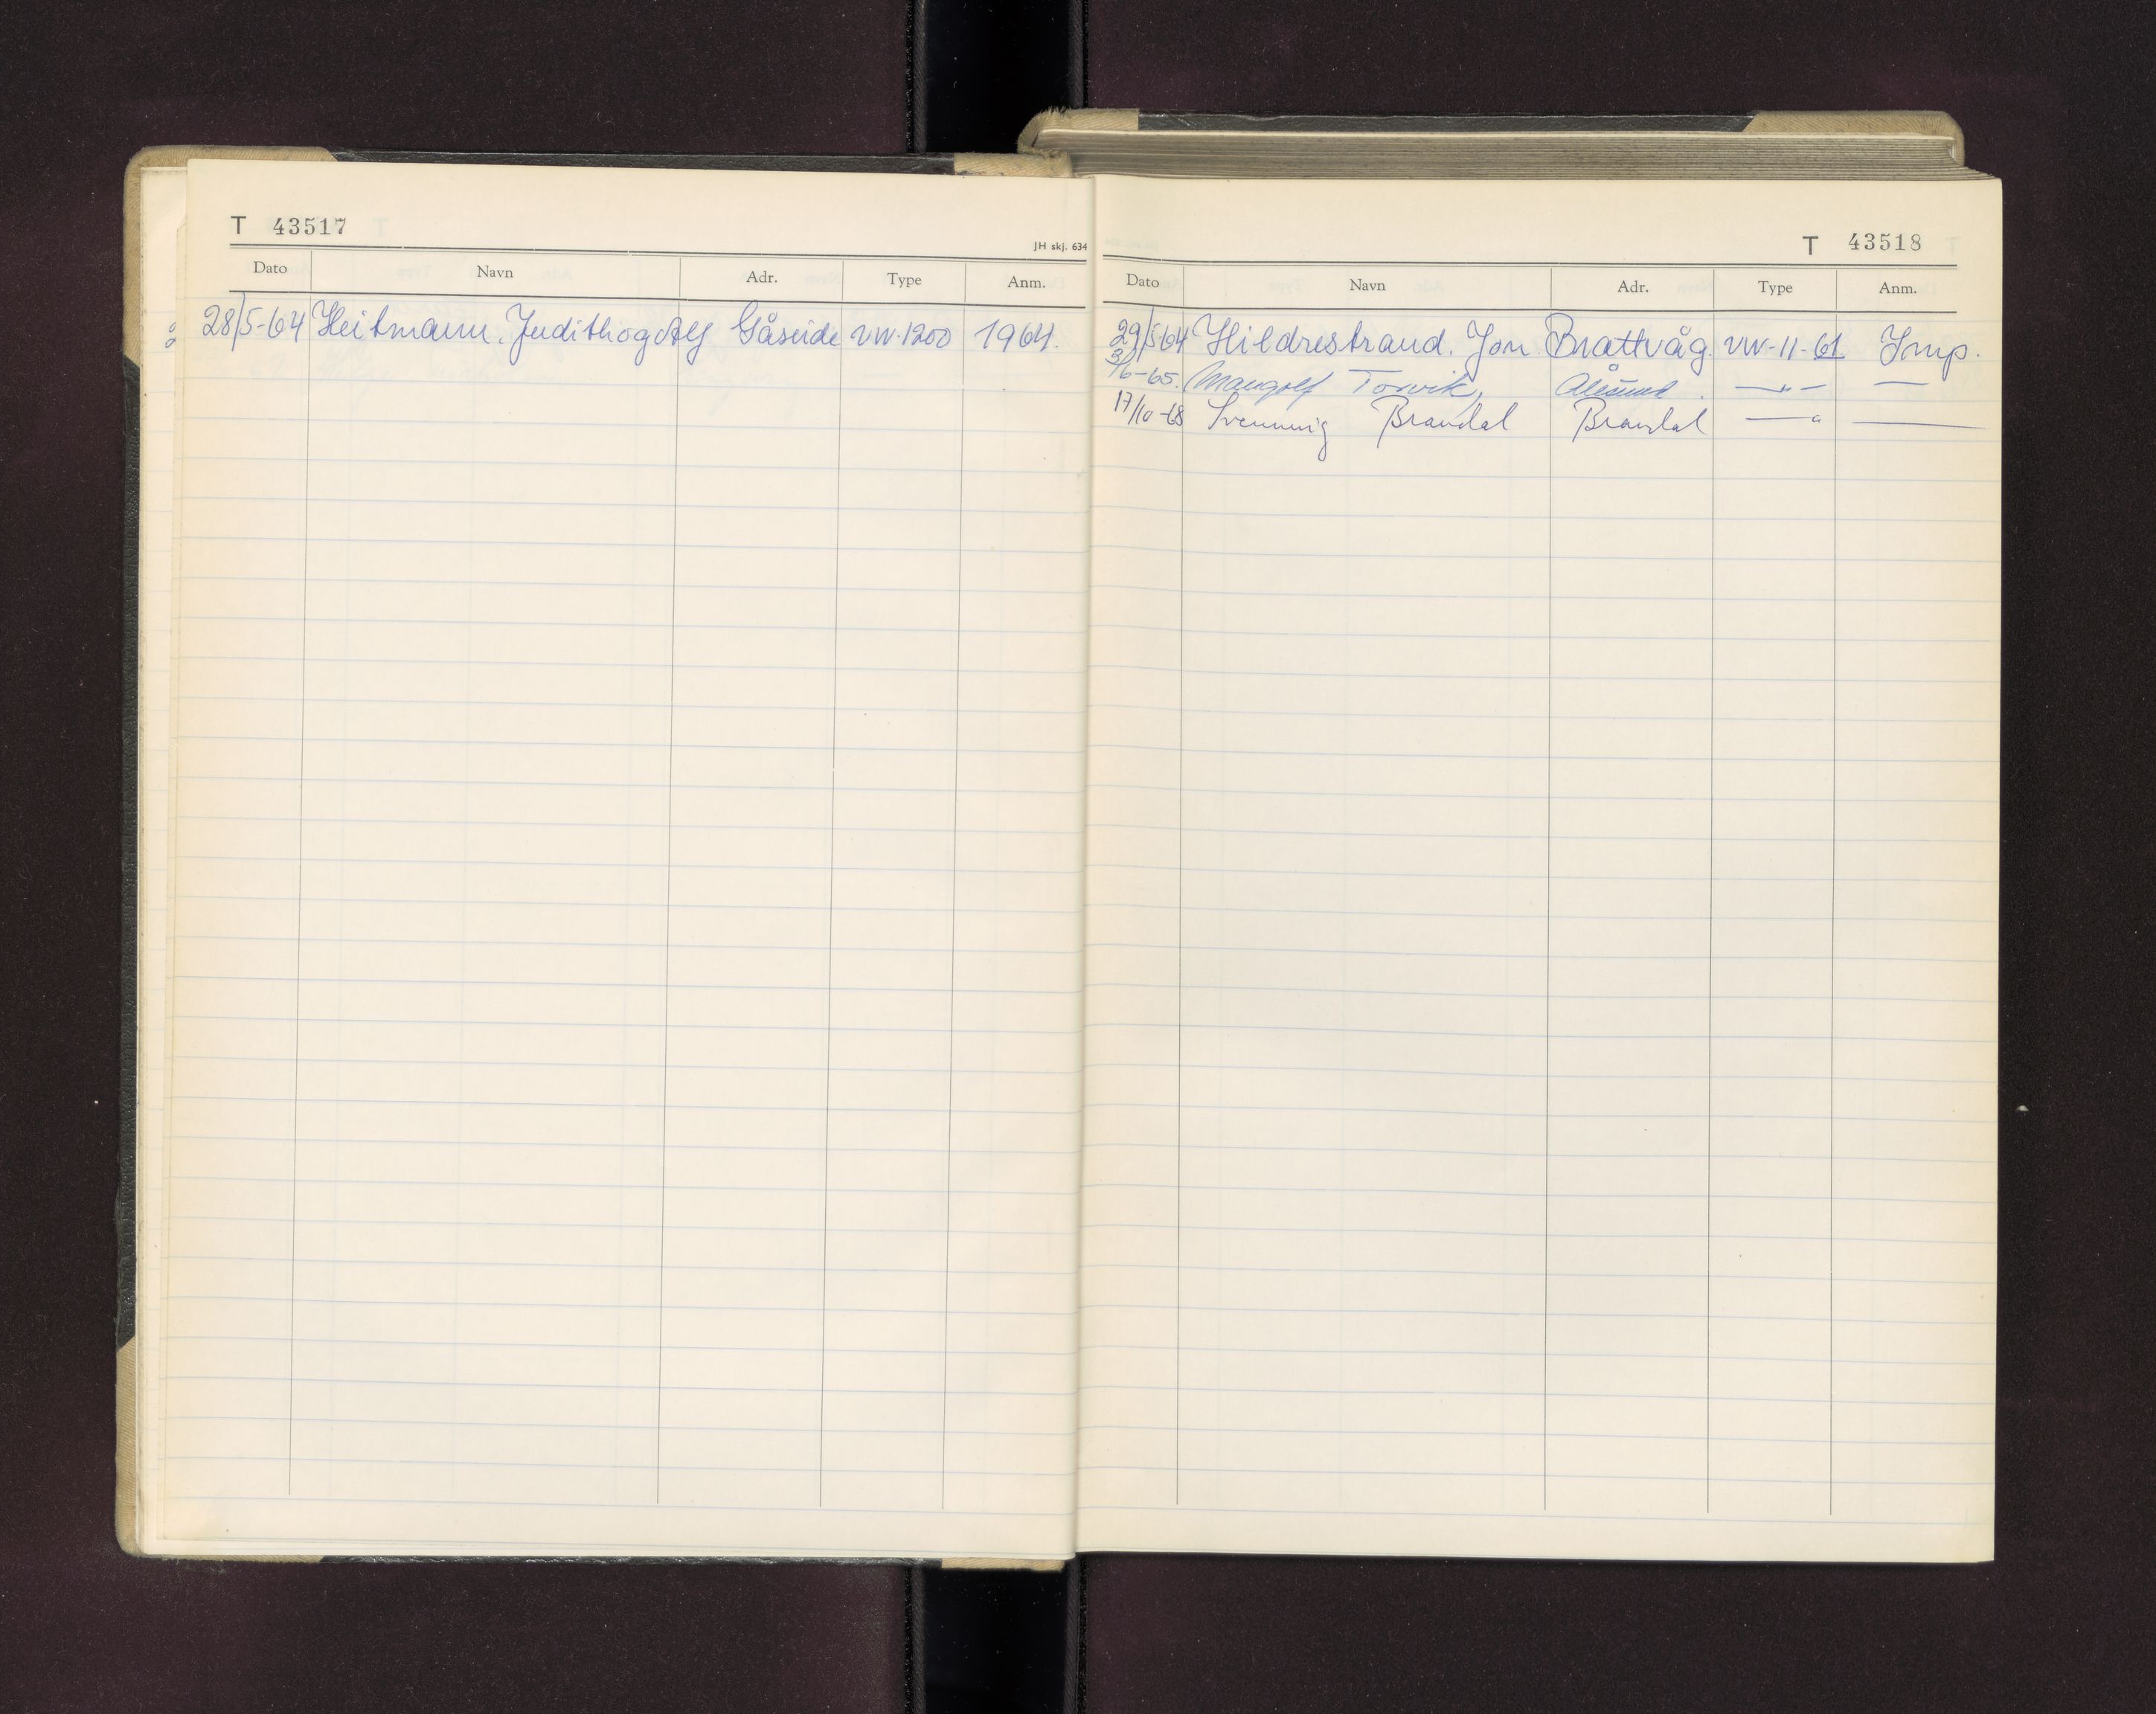 T 43517
JH skj. 634
Dato Navn Adr. Type Anm.
28/5-64 Heitmann, Judith og Alf Gåseide VW.1200 1964.
T 43518
Dato Navn Adr. Type Anm.
29/5-64 Hildrestrand. Jon Brattvåg. VW-11-61 Imp.
3/6-65. Mangolf Torvik, Ålesund. —"— —
17/10-68 Svenning Brandal Brandal —"— —